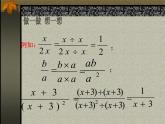 做一做 想一想
例如: x/2x = x÷x/2x÷x = 1/2 ;
b/a = b×a/a×a = ab/a² ;
x+3/(x+3)² = (x+3)÷(x+3)/(x+3)²÷(x+3) = 1/x+3